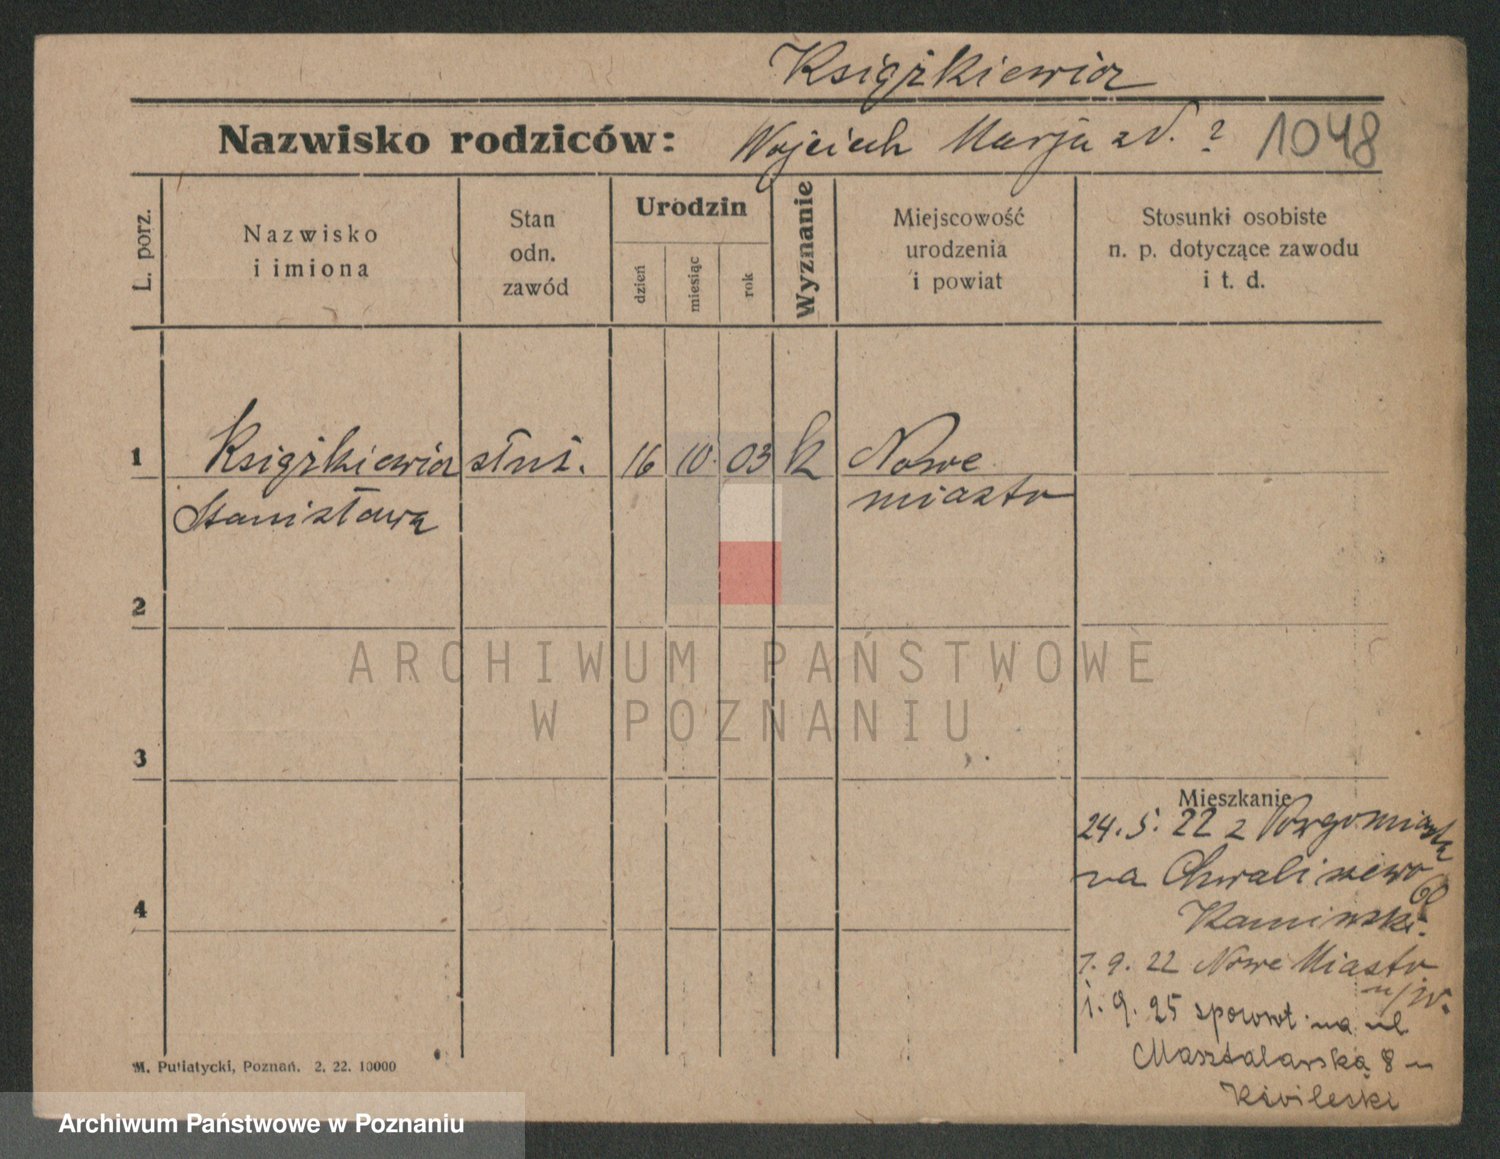 Książkiewicz
Nazwisko rodziców: Wojciech Marja zd. ? 1048
L. porz.
Nazwisko
i imiona
Stan
odn.
zawód
Urodzin
dzień
miesiąc
rok
Wyznanie
Miejscowość
urodzenia
i powiat
Stosunki osobiste
n. p. dotyczące zawodu
i t. d.
1 Książkiewicz służ. 16 10. 03 k Nowe
Stanisława miasto
2
ARCHIWUM PAŃSTWOWE
W POZNANIU
3
Mieszkanie
24. 5. 22 z
na Chwaliszewo
4
Kamiński.
1. 9. 22 Nowe Miasto
n/W.
1. 9. 25 spowrot na ul
Masztalarską 8
M. Putiatycki, Poznań. 2. 22. 10000
Archiwum Państwowe w Poznaniu